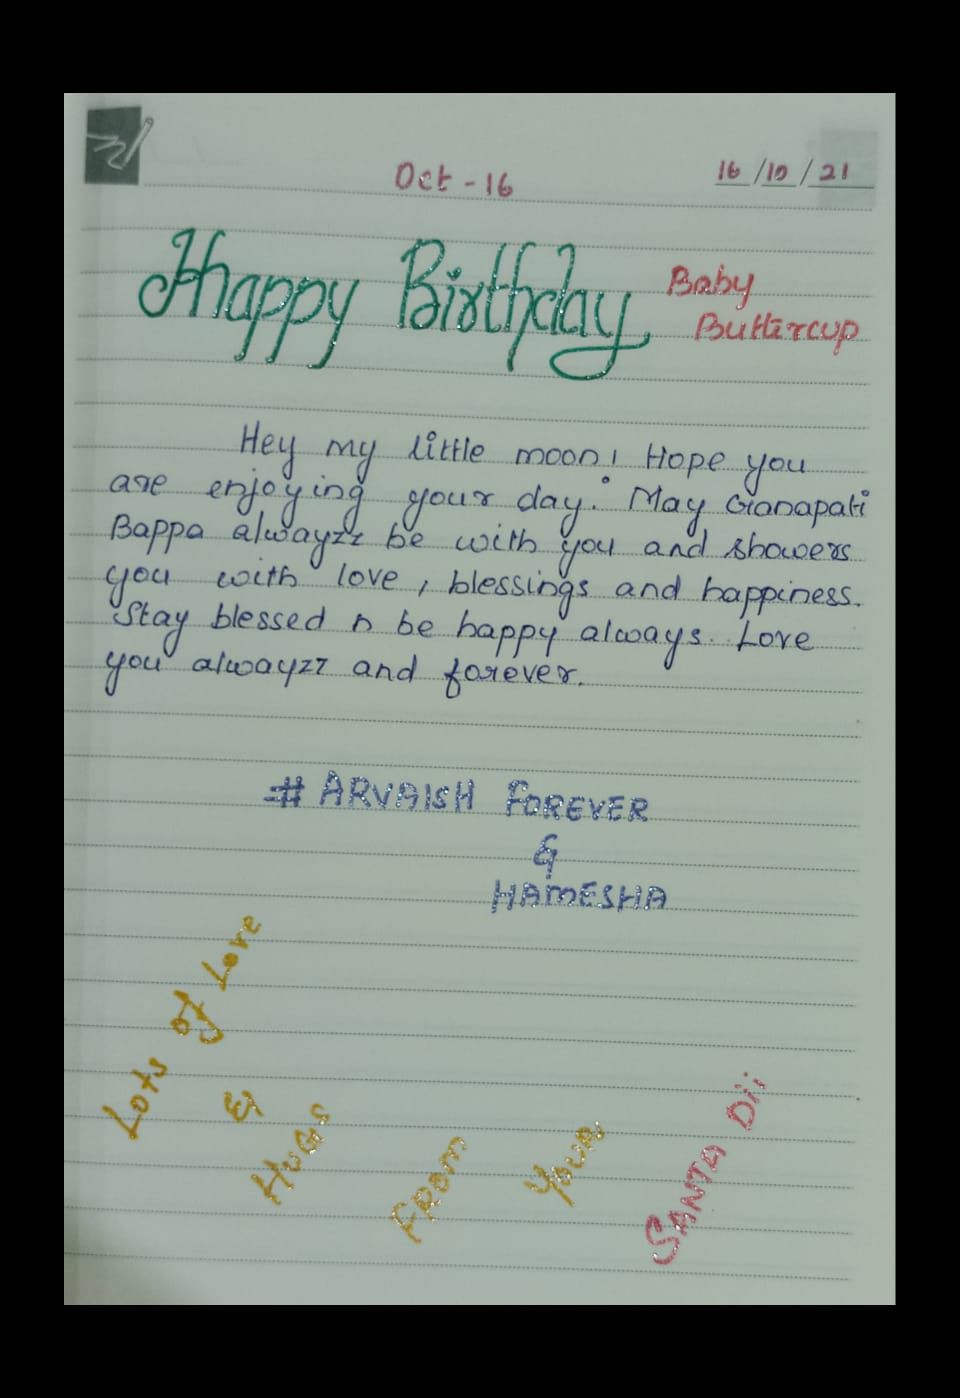 Oct - 16
16/10/21
Happy Birthday
Baby
Buttercup
Hey my little moon! Hope you
are enjoying your day. May Ganapati
Bappa alwayzz be with you and showers
you with love, blessings and happiness.
Stay blessed n be happy always. Love
you alwayzz and forever.
# ARVAISH FOREVER
&
HAMESHA
Lots of Love
&
HUGS
FROM
Your
SANTA Dii